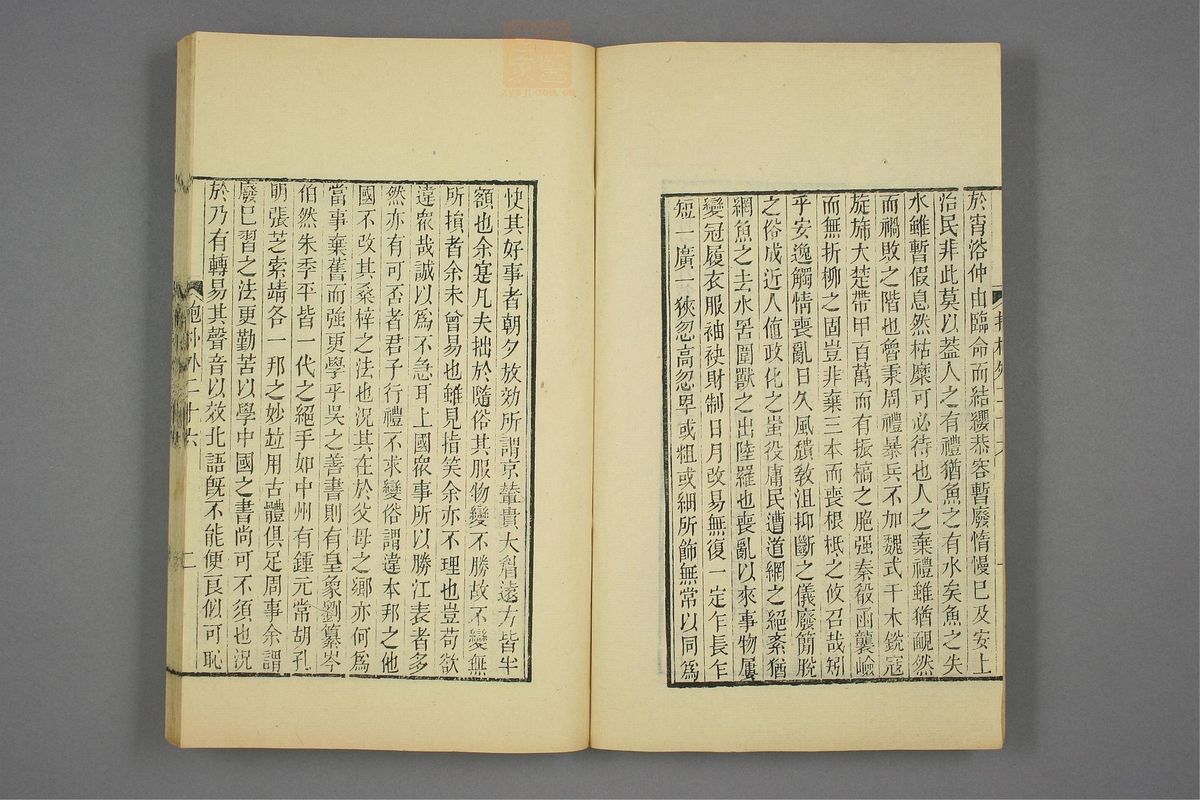 於宵浴仲由臨命而結纓恭容暫廢惰慢巳及安上
治民非此莫以葢人之有禮猶魚之有水矣魚之失
水雖暫假息然枯糜可必待也人之棄禮雖猶靦然
而禍敗之階也曾秉周禮暴兵不加魏式干木銳寇
旋斾大楚帶甲百萬而有振槁之脆强秦殽函襲嶮
而無折柳之固豈非棄三本而喪根柢之攸召哉矧
乎安逸觸情喪亂日久風穨敎沮抑斷之儀廢簡脫
之俗成近人値政化之蚩役庸民遭道網之絕紊猶
網魚之去水罟圍獸之出陸羅也喪亂以來事物屢
變冠履衣服袖袂財制日月改易無復一定乍長乍
短一廣一狹忽高忽卑或粗或細所飾無常以同爲
快其好事者朝夕放効所謂京輦貴大眉遠方皆半
額也余寔凡夫拙於隨俗其服物變不勝故不變無
所損者余未曾易也雖見指笑余亦不理也豈苟欲
違衆哉誠以爲不急耳上國衆事所以勝江表者多
然亦有可否者君子行禮不求變俗謂違本邦之他
國不改其桑梓之法也況其在於父母之鄉亦何爲
當事棄舊而強更學乎吳之善書則有皇象劉纂岑
伯然朱季平皆一代之絕手如中州有鍾元常胡孔
明張芝索靖各一邦之妙竝用古體俱足周事余謂
廢巳習之法更勤苦以學中國之書尚可不須也況
於乃有轉易其聲音以效北語旣不能便良似可恥
抱朴外二十六
二